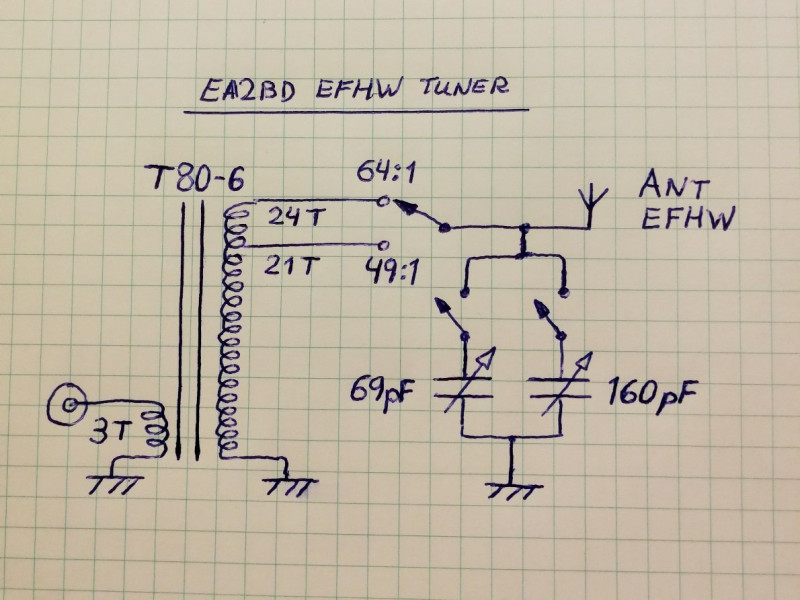 EA2BD EFHW TUNER
T80-6
64:1
24T
21T
49:1
ANT
EFHW
3T
69pF
160pF